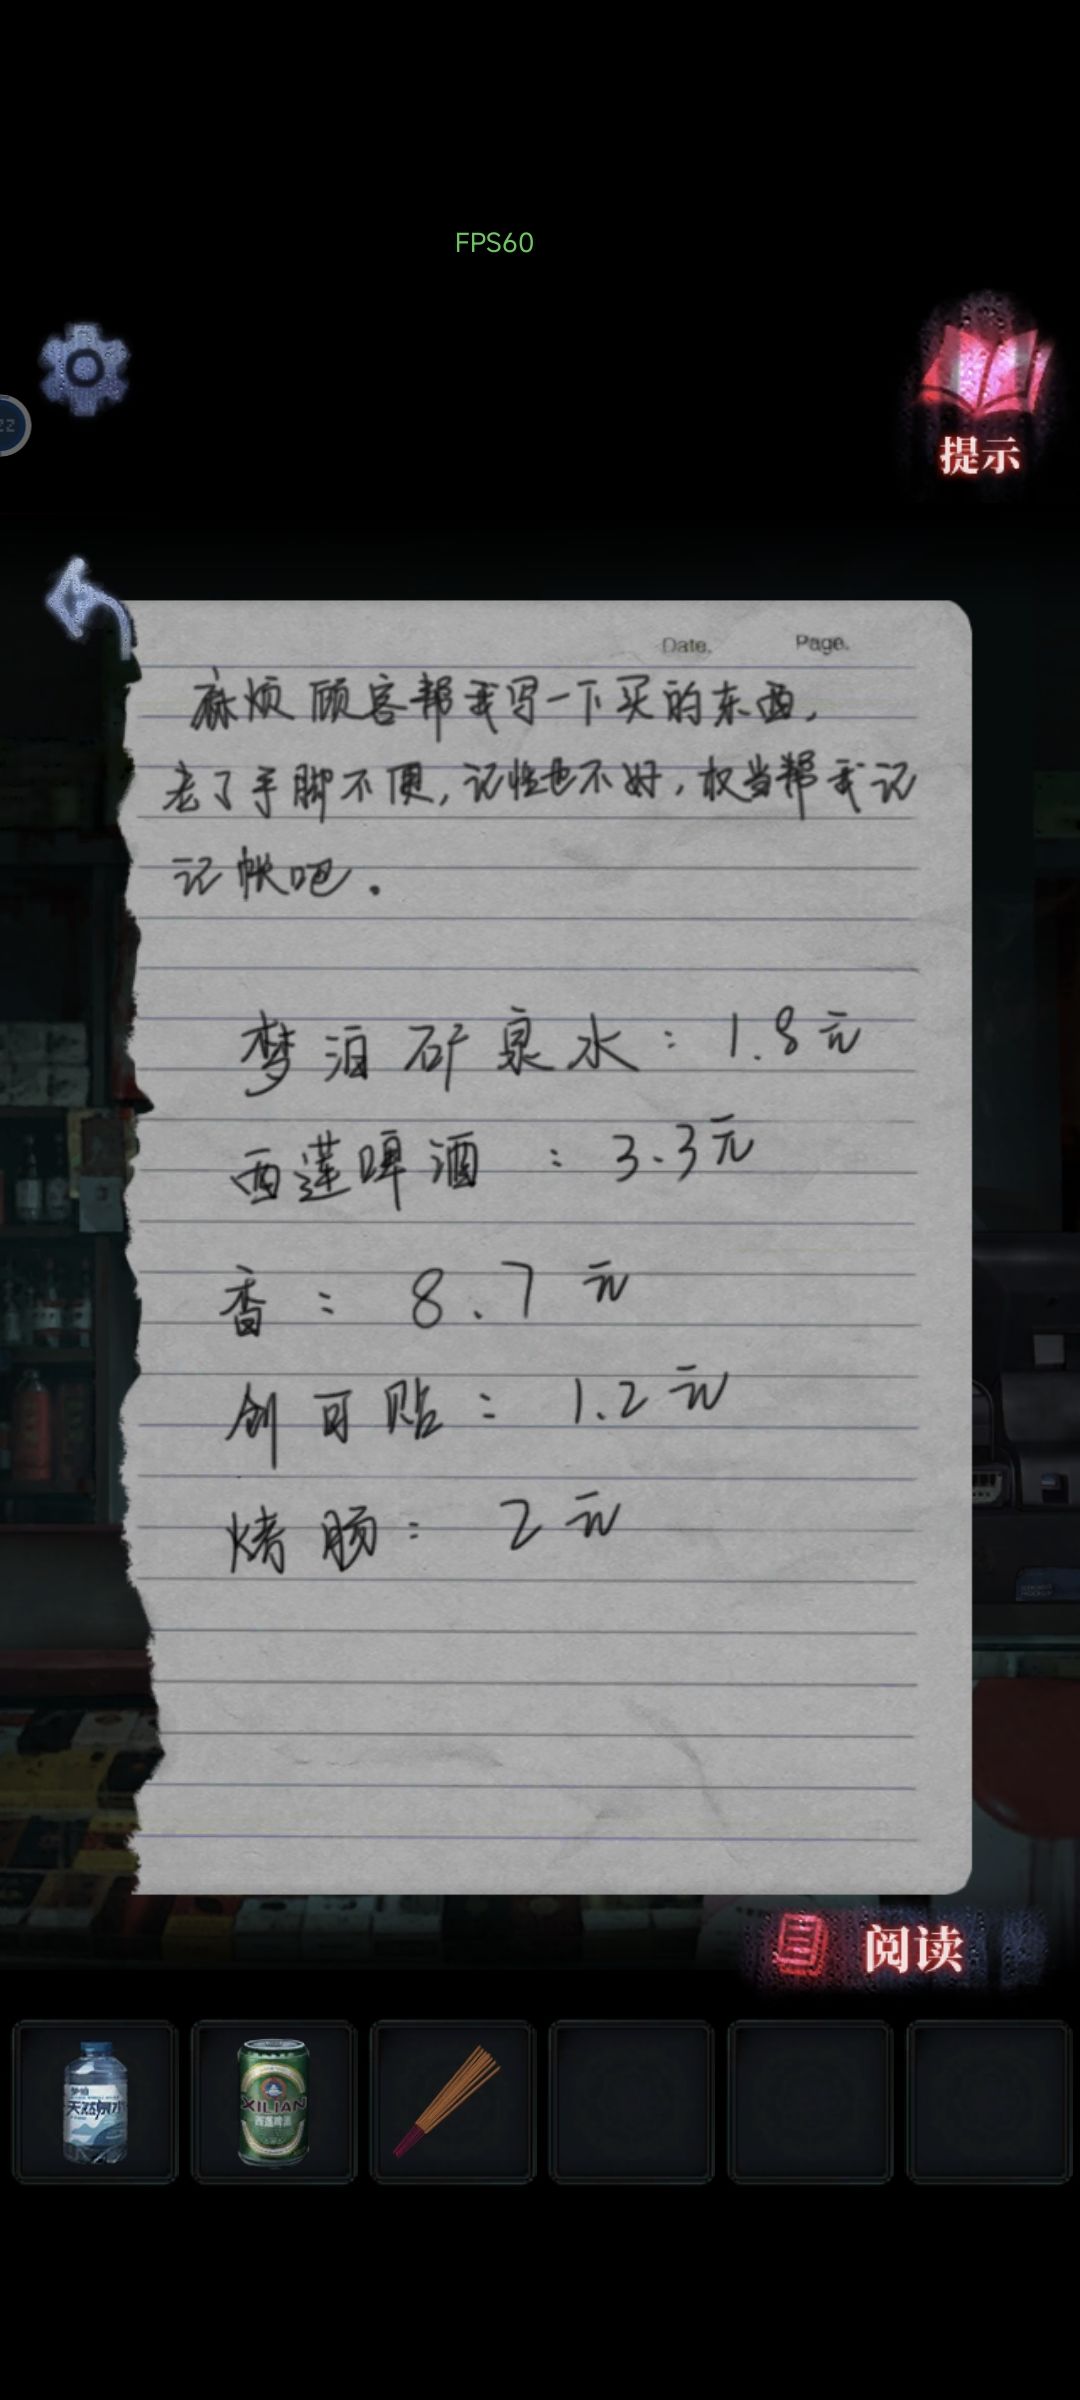 FPS60
22
提示
Date.
Page.
麻烦顾客帮我写一下买的东西,
老了手脚不便,记性也不好,权当帮我记
记帐吧.
梦泊矿泉水: 1.8元
西莲啤酒 : 3.3元
香: 8.7元
创可贴: 1.2元
烤肠: 2元
阅读
梦泊
天然泉水
XILIAN
西莲啤酒